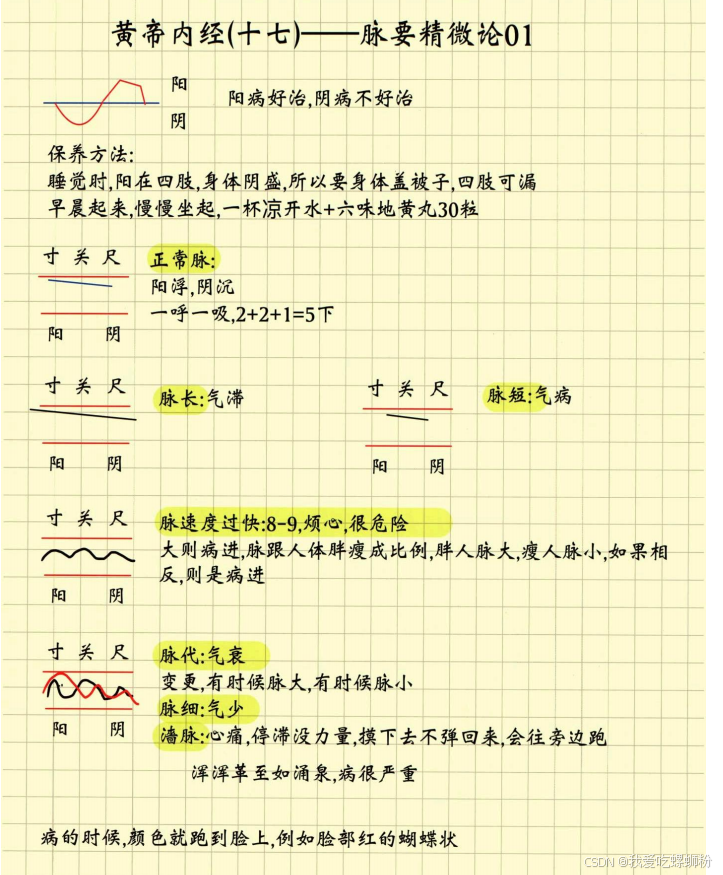 黄帝内经(十七)——脉要精微论01
阳
阴
阳病好治,阴病不好治
保养方法:
睡觉时,阳在四肢,身体阴盛,所以要身体盖被子,四肢可漏
早晨起来,慢慢坐起,一杯凉开水+六味地黄丸30粒
寸 关 尺
正常脉:
阳浮,阴沉
一呼一吸,2+2+1=5下
阳 阴
寸 关 尺
脉长:气滞
阳 阴
寸 关 尺
脉短:气病
阳 阴
寸 关 尺
脉速度过快:8-9,烦心,很危险
大则病进,脉跟人体胖瘦成比例,胖人脉大,瘦人脉小,如果相
反,则是病进
阳 阴
寸 关 尺
脉代:气衰
变更,有时候脉大,有时候脉小
脉细:气少
阳 阴
濇脉:心痛,停滞没力量,摸下去不弹回来,会往旁边跑
浑浑革至如涌泉,病很严重
病的时候,颜色就跑到脸上,例如脸部红的蝴蝶状
CSDN @我爱吃螺蛳粉